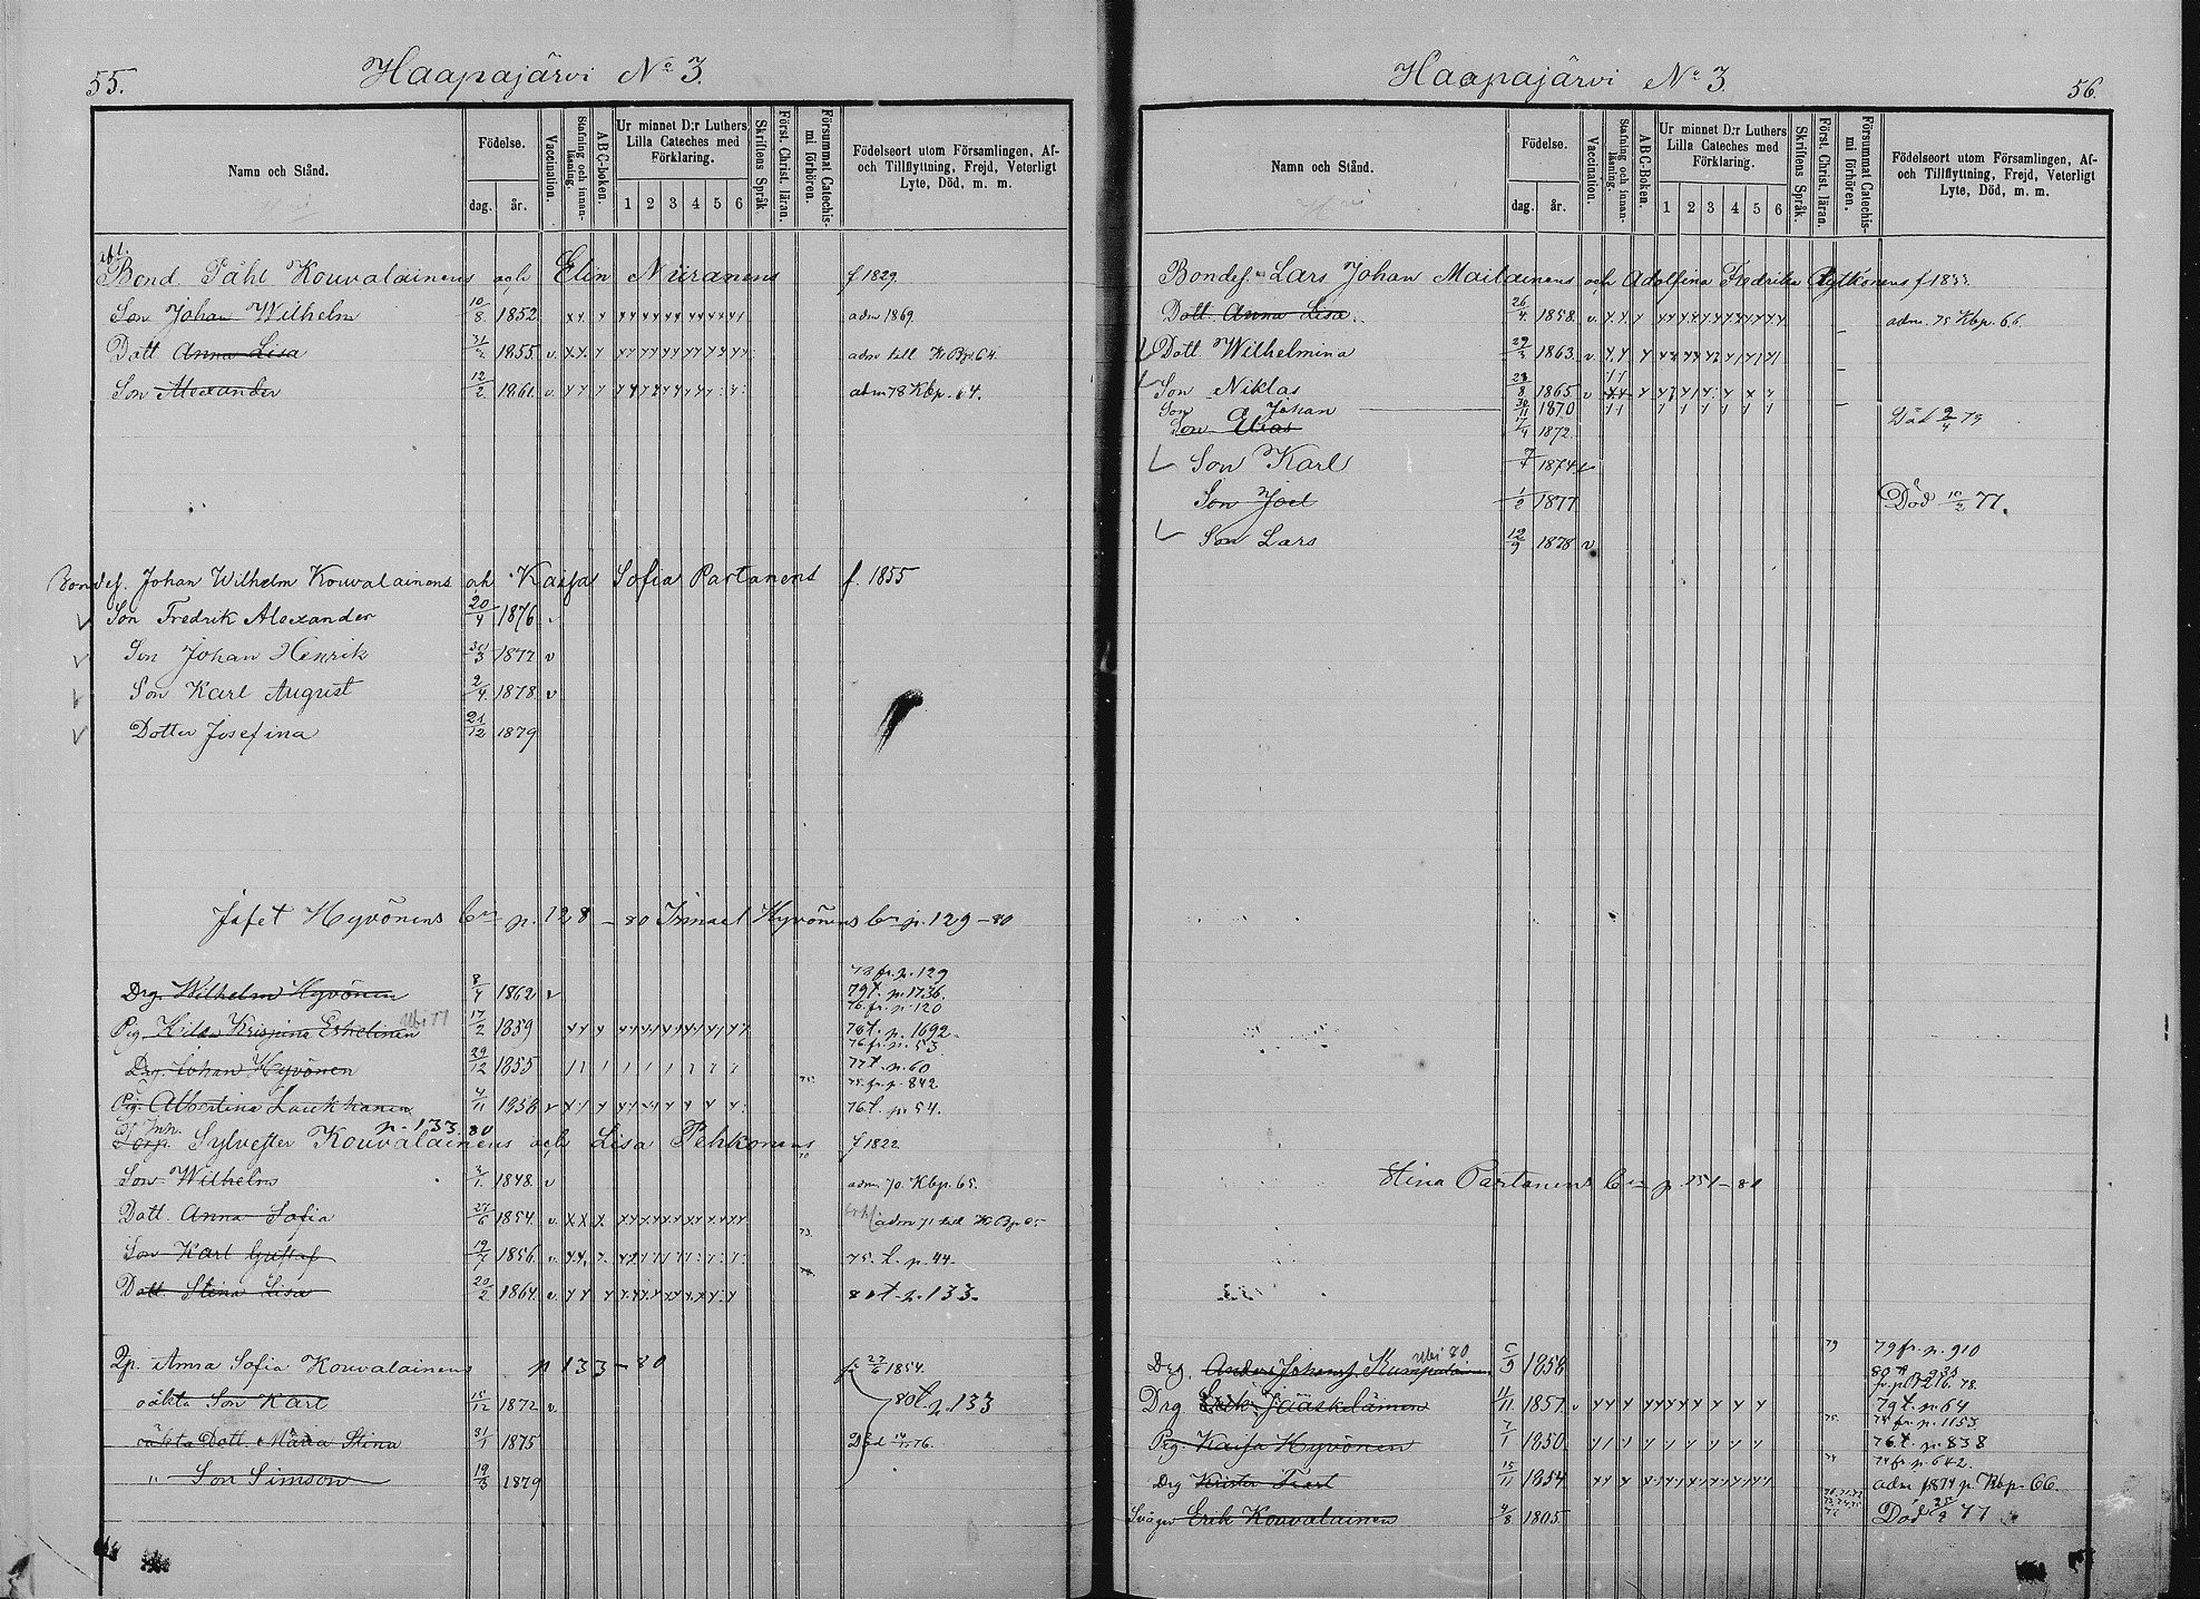 55.
Haapajärvi No 3.
Namn och Stånd.
Födelse.
dag.
år.
Vaccination.
Stafning och innanläsning.
ABC-boken.
Ur minnet D:r Luthers Lilla Cateches med Förklaring.
1 2 3 4 5 6
Skriftens Språk.
Först. Christ. läran.
Försummat Catechismi förhören.
Födelseort utom Församlingen, Af- och Tillflyttning, Frejd, Veterligt Lyte, Död, m. m.
Bond. Påhl Kouvalainens och Elin Niiranens f 1829.
Son Johan Wilhelm 10/8 1852 adm 1869.
Dott Anna Lisa 1855 v. adm till K.Bp. 64
Son Alexander 12/2 1861. v. adm 78 Kbp. 64.
Bondes. Johan Wilhelm Kouvalainens och Kaisa Sofia Partanens f. 1855
Son Fredrik Alexander 20/4 1876
Son Johan Henrik 1877 v
Son Karl August 2/4 1878 v
Dotter Josefina 21/12 1879
Jafet Hyvönens p. 128 - 80 Ismael Hyvönens p. 129 - 80
78 fr. p. 129
Drg. Wilhelm Hyvönen 8/4 1862 v 79 t. p. 1736.
76. fr. p. 120
Pig. Hilda Eskelinen 17/2 1859 78 t. p. 1692
76 fr. p. 53
Drg. Johan Hyvönen 29/12 1855 77 t. p. 60
75. fr. p. 842
Pig. Albertina Laukkanen 4/11 1858 v 76 t. p. 54.
p. 133. 80
Sylvester Kouvalainens och Lisa Pehkonens f 1822
Son Wilhelm 3/1 1848. v adm. 70. Kbp. 65.
Dott. Anna Sofia 27/6 1854. v. adm 71 till K.Bp 65
Son Karl Gustaf 19/7 1856. v. 75. t. p. 44.
Dott. Stina Lisa 20/2 1864. v. 80 t. p. 133.
Qp. Anna Sofia Kouvalainens p 133 - 80 f. 27/6 1854.
oäkta Son Karl 15/12 1872 v. 80 t. p. 133
oäkta Dott. Maria Stina 31/1 1875 Död 76.
" Son Simson 19/3 1879
Haapajärvi No 3.
56.
Namn och Stånd.
Födelse.
dag.
år.
Vaccination.
Stafning och innanläsning.
ABC-Boken.
Ur minnet D:r Luthers Lilla Cateches med Förklaring.
1 2 3 4 5 6
Skriftens Språk.
Först. Christ. läran.
Försummat Catechismi förhören.
Födelseort utom Församlingen, Af- och Tillflyttning, Frejd, Veterligt Lyte, Död, m. m.
Bondes. Lars Johan Mailainens och Adolfina Fredrika Rytkönens
Dott. Anna Lisa 26/4 1858. v. adm. 75 Kbp. 66.
Dott. Wilhelmina 1863 v
Son Niklas 1865 v
Son Johan 30/11 1870
Son Elias 17/4 1872. Död 79
Son Karl 1874 v
Son Joel 1/2 1877 Död 10/2 77.
Son Lars 19/9 1878 v
Stina Partanens p. 151 - 80
79 fr. p. 910
Drg. Anders Johans. 1858
fr. p. 1216. 78.
Drg Erik Jääskeläinen 11/11 1857 v 79 t. p. 64
fr. p. 1153
Pig. Kaisa Hyvönen 7/1 1850 76. t. p. 838
74 fr. p. 642.
Drg Krister Trast 15/11 1854 adm 1874 p. Kbp. 66.
Svåger Erik Kouvalainen 4/8 1805 Död 25/2 77